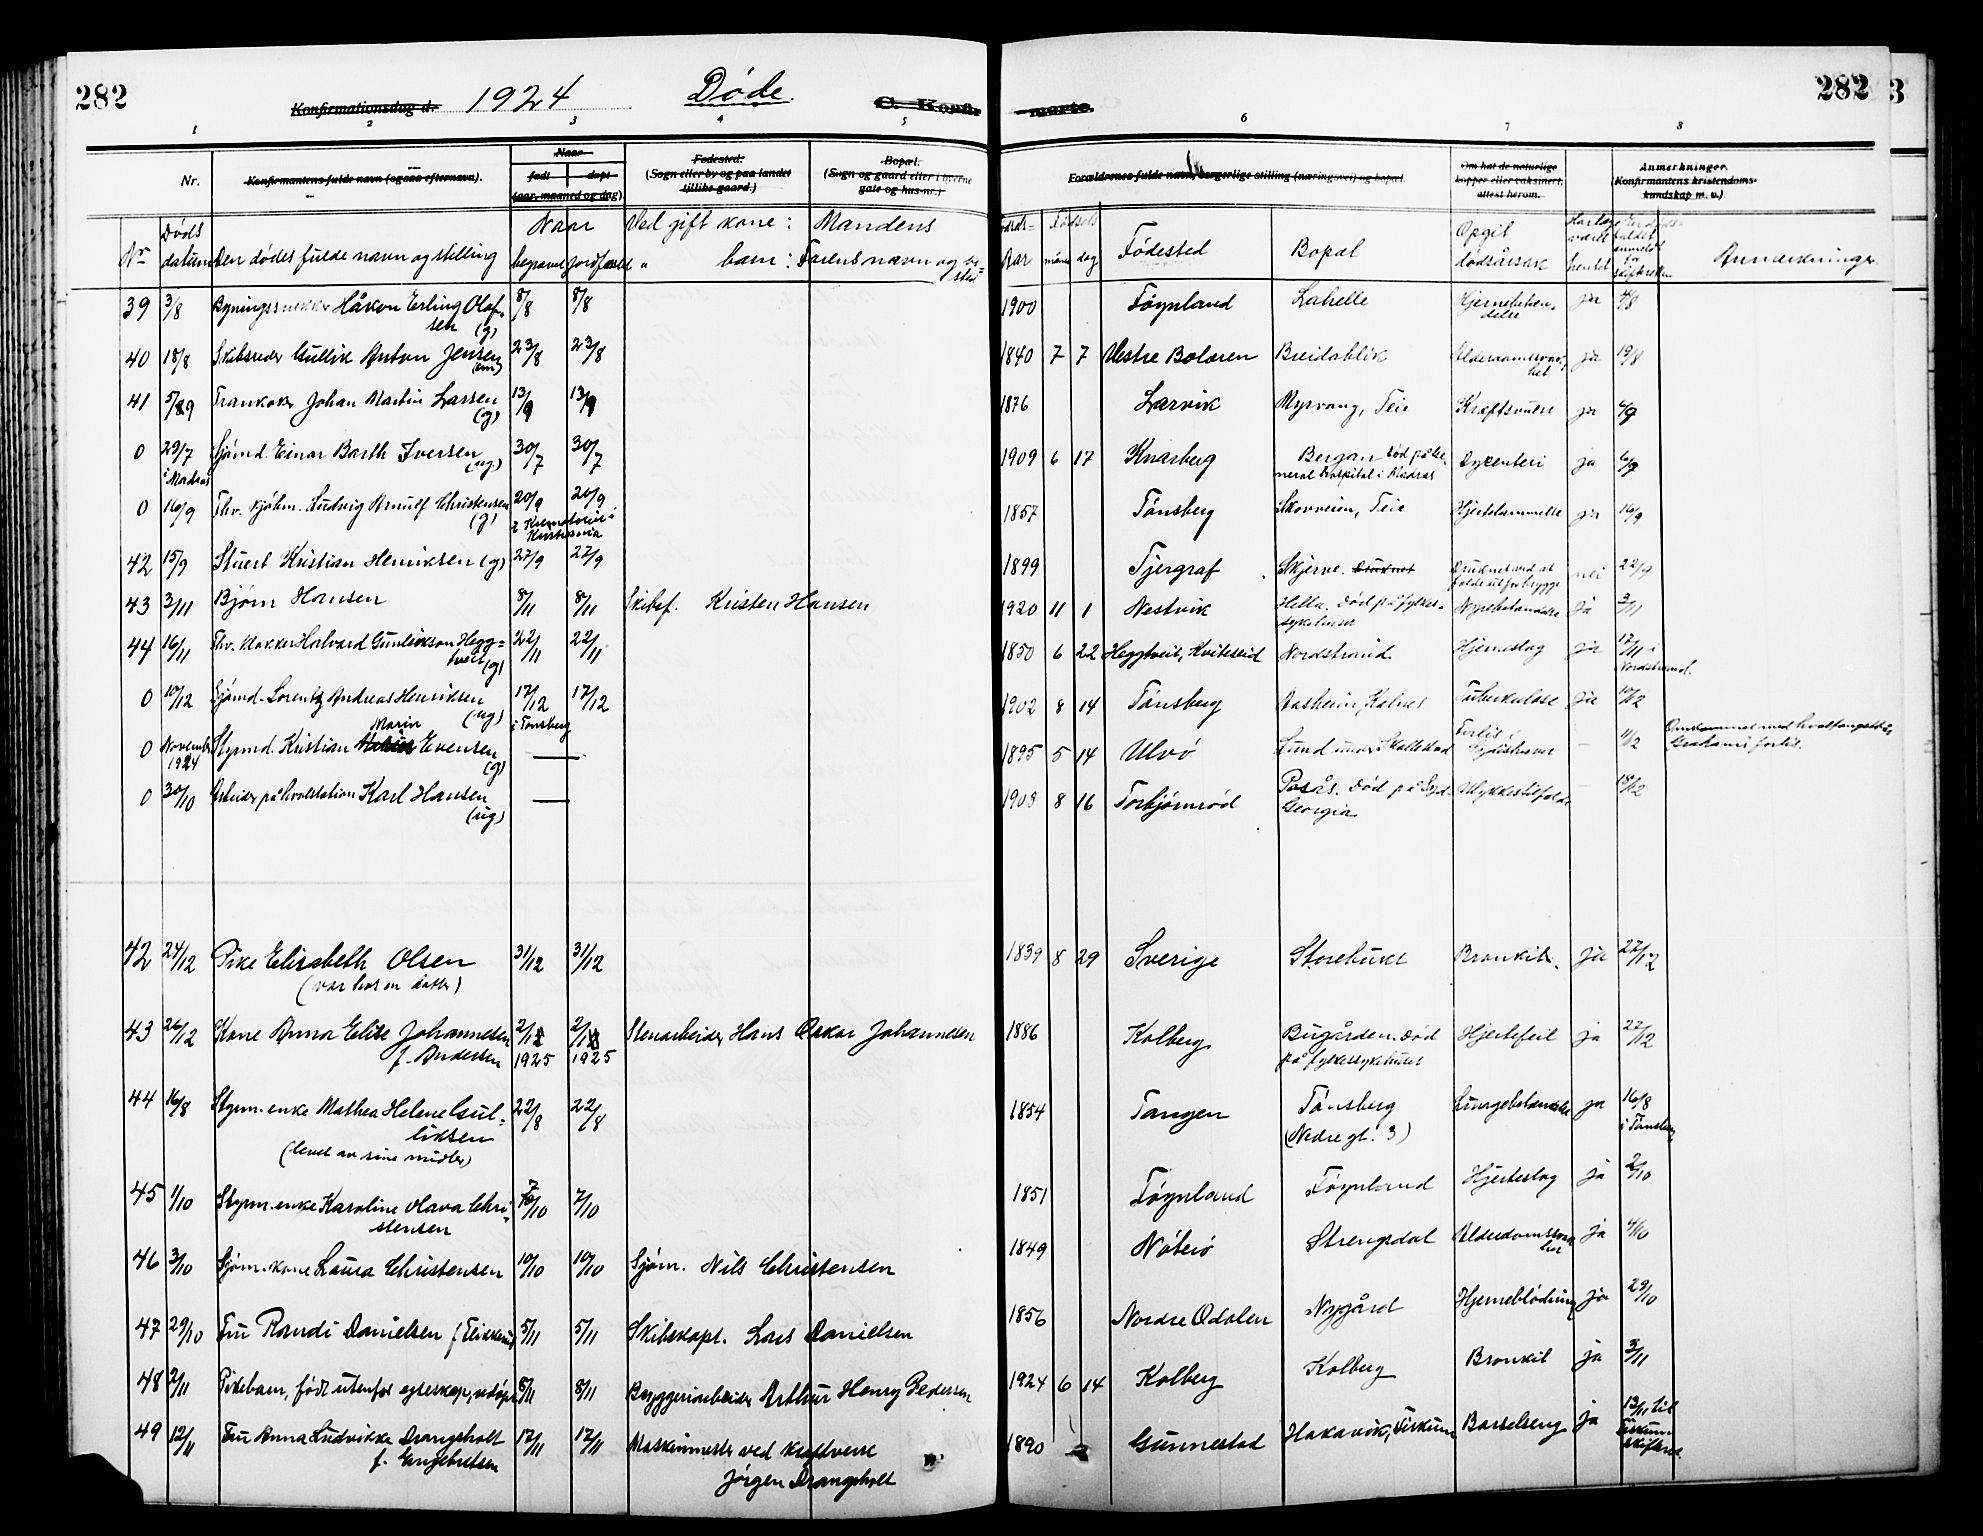 282
Konfirmationsdag d. 1924 Døde. C. Konfir- 
merte. 282
1 2 3 4 5 6 7 8
Nr.
Konfirmantens fulde navn (ogsaa efternavn).
Naar
født døpt
(aar, maaned og dag)
Fødested.
(Sogn eller by og paa landet
tillike gaard.)
Bopæl.
(Sogn og gaard eller i byerne
gate og hus-nr.)
Forældrenes fulde navn, borgerlige stilling (næringsvei) og bopæl
Om hat de naturlige
kopper eller vaksinert,
attest herom.
Anmerkninger.
(Konfirmantens kristendoms-
kundskap m. v.)
Nr Døds datum Den dødes fulde navn og stilling Naar begravet jordfæstet Ved gift kone: Mandens
" barn: Farens navn og bosted
Aar måned dag Fødested Bopæl Opgit dødsårsak Anmerkninger
39 3/8 Bygningssnekker Håkon Erling Olaf-
sen (g) 8/8 8/8 1900 Føynland Labelle Hjernebetæn-
delse ja 4/8
40 18/8 Skibsreder Gullik Anton Jensen
(em) 23/8 23/8 1840 7 7 Vestre Bolæren Breidablik Alderdomssvak-
het ja 19/8
41 5/9 Trankoker Johan Martin Larsen
(g) 13/9 13/9 1876 Larvik Myrvang, Teie Kræftsvulst ja 6/9
0 29/7 i Madras Sjømd. Einar Barth Iversen
(ug) 30/7 30/7 1909 6 17 Knarberg Bergan Død på Ge-
neral Hospital i Madras Dysenteri ja 6/9
0 16/9 Fhv. kjøbm. Ludvig Arnulf Christensen
(g) 20/9 20/9
i Krematoriet i
Kristiania 1857 Tønsberg Skovveien, Teie Hjertelammelse ja 16/9
42 15/9 Stuert Kristian Henriksen (g) 27/9 27/9 1899 Fjergraf Skjerve. Druknet Druknet ved at
falde ut for brygge nei 22/9
43 3/11 Bjørn Hansen 8/11 8/11 Skibsf. Kristen Hansen 1920 11 1 Nestvik Hella. Død på fylkes-
sykehuset Nyrebetændelse ja 3/11
44 16/11 Fhv. klokker Halvard Gunleikson Hegg-
tveit (g) 22/11 22/11 1850 6 22 Heggtveit, Kviteseid Nordstrand Hjerneslag ja 17/11 i
Nordstrand.
0 10/12 Sjømd. Lorentz Andreas Henriksen
(ug) 17/12 17/12
i Tønsberg 1902 8 14 Tønsberg Aasheim, Kalnes Tuberkulose ja 10/12
0 November
1924 Styrmd. Kristian Marin Evensen
(g) — 1895 5 14 Ulvø Lund under Skallestad Forlis i
Sydishavet — 11/12 Omkommet med hvalfangstbå.
Grahams forlis.
0 30/10 Arbeider på hvalstation Karl Hansen
(ug) — 1903 8 16 Torbjørnrød Død på Syd
Georgia Ulykkestilfælde — 18/12
42 24/12 Pike Elisabeth Olsen
(var hos en datter) 31/12 31/12 1839 8 29 Sverige Storebukt Bronkit. ja 27/12
43 26/12 Kone Anna Elise Johannesen
f. Andersen 2/1
1925 2/1
1925 Stenarbeider Hans Oskar Johannesen 1886 Kolberg Bugården. Død
på fylkessykehuset Hjertefeil ja 27/12
44 16/8 Styrm. enke Mathea Helene Gul-
liksen
(levet av sine midler) 22/8 22/8 1854 Tangen Tønsberg
(Nedre gt. 3) Lungebetændelse ja 16/8
i Tønsberg
45 1/10 Styrm. enke Karoline Olava Chri-
stensen 7/10 7/10 1851 Føynland Føynland Hjerteslag ja 2/10
46 3/10 Sjøm. kone Laura Christensen 10/10 10/10 Sjøm. Nils Christensen 1849 Nøterø Strengsdal Alderdomssvak
het ja 4/10
47 29/10 Fru Randi Danielsen 5/11 5/11 Skibskapt. Lars Danielsen 1856 Nordre Odalen Nygård Hjerneblødning ja 29/10
48 2/11 Pikebarn, født utenfor egteskap, udøpt 8/11 8/11 Bryggeriarbeider Arthur Henry Pedersen 1924 6 14 Kolberg Kolberg Bronkit ja 3/11
49 12/11 Fru Anna Ludvikke Drangsholt
f. Engebretsen 17/11 17/11 Maskinmester ved kraftverk
Jørgen Drangsholt 1890 Gunnestad Hakavik, Fiskum Barselseng ja 13/11 til
Fiskum
skifteret.